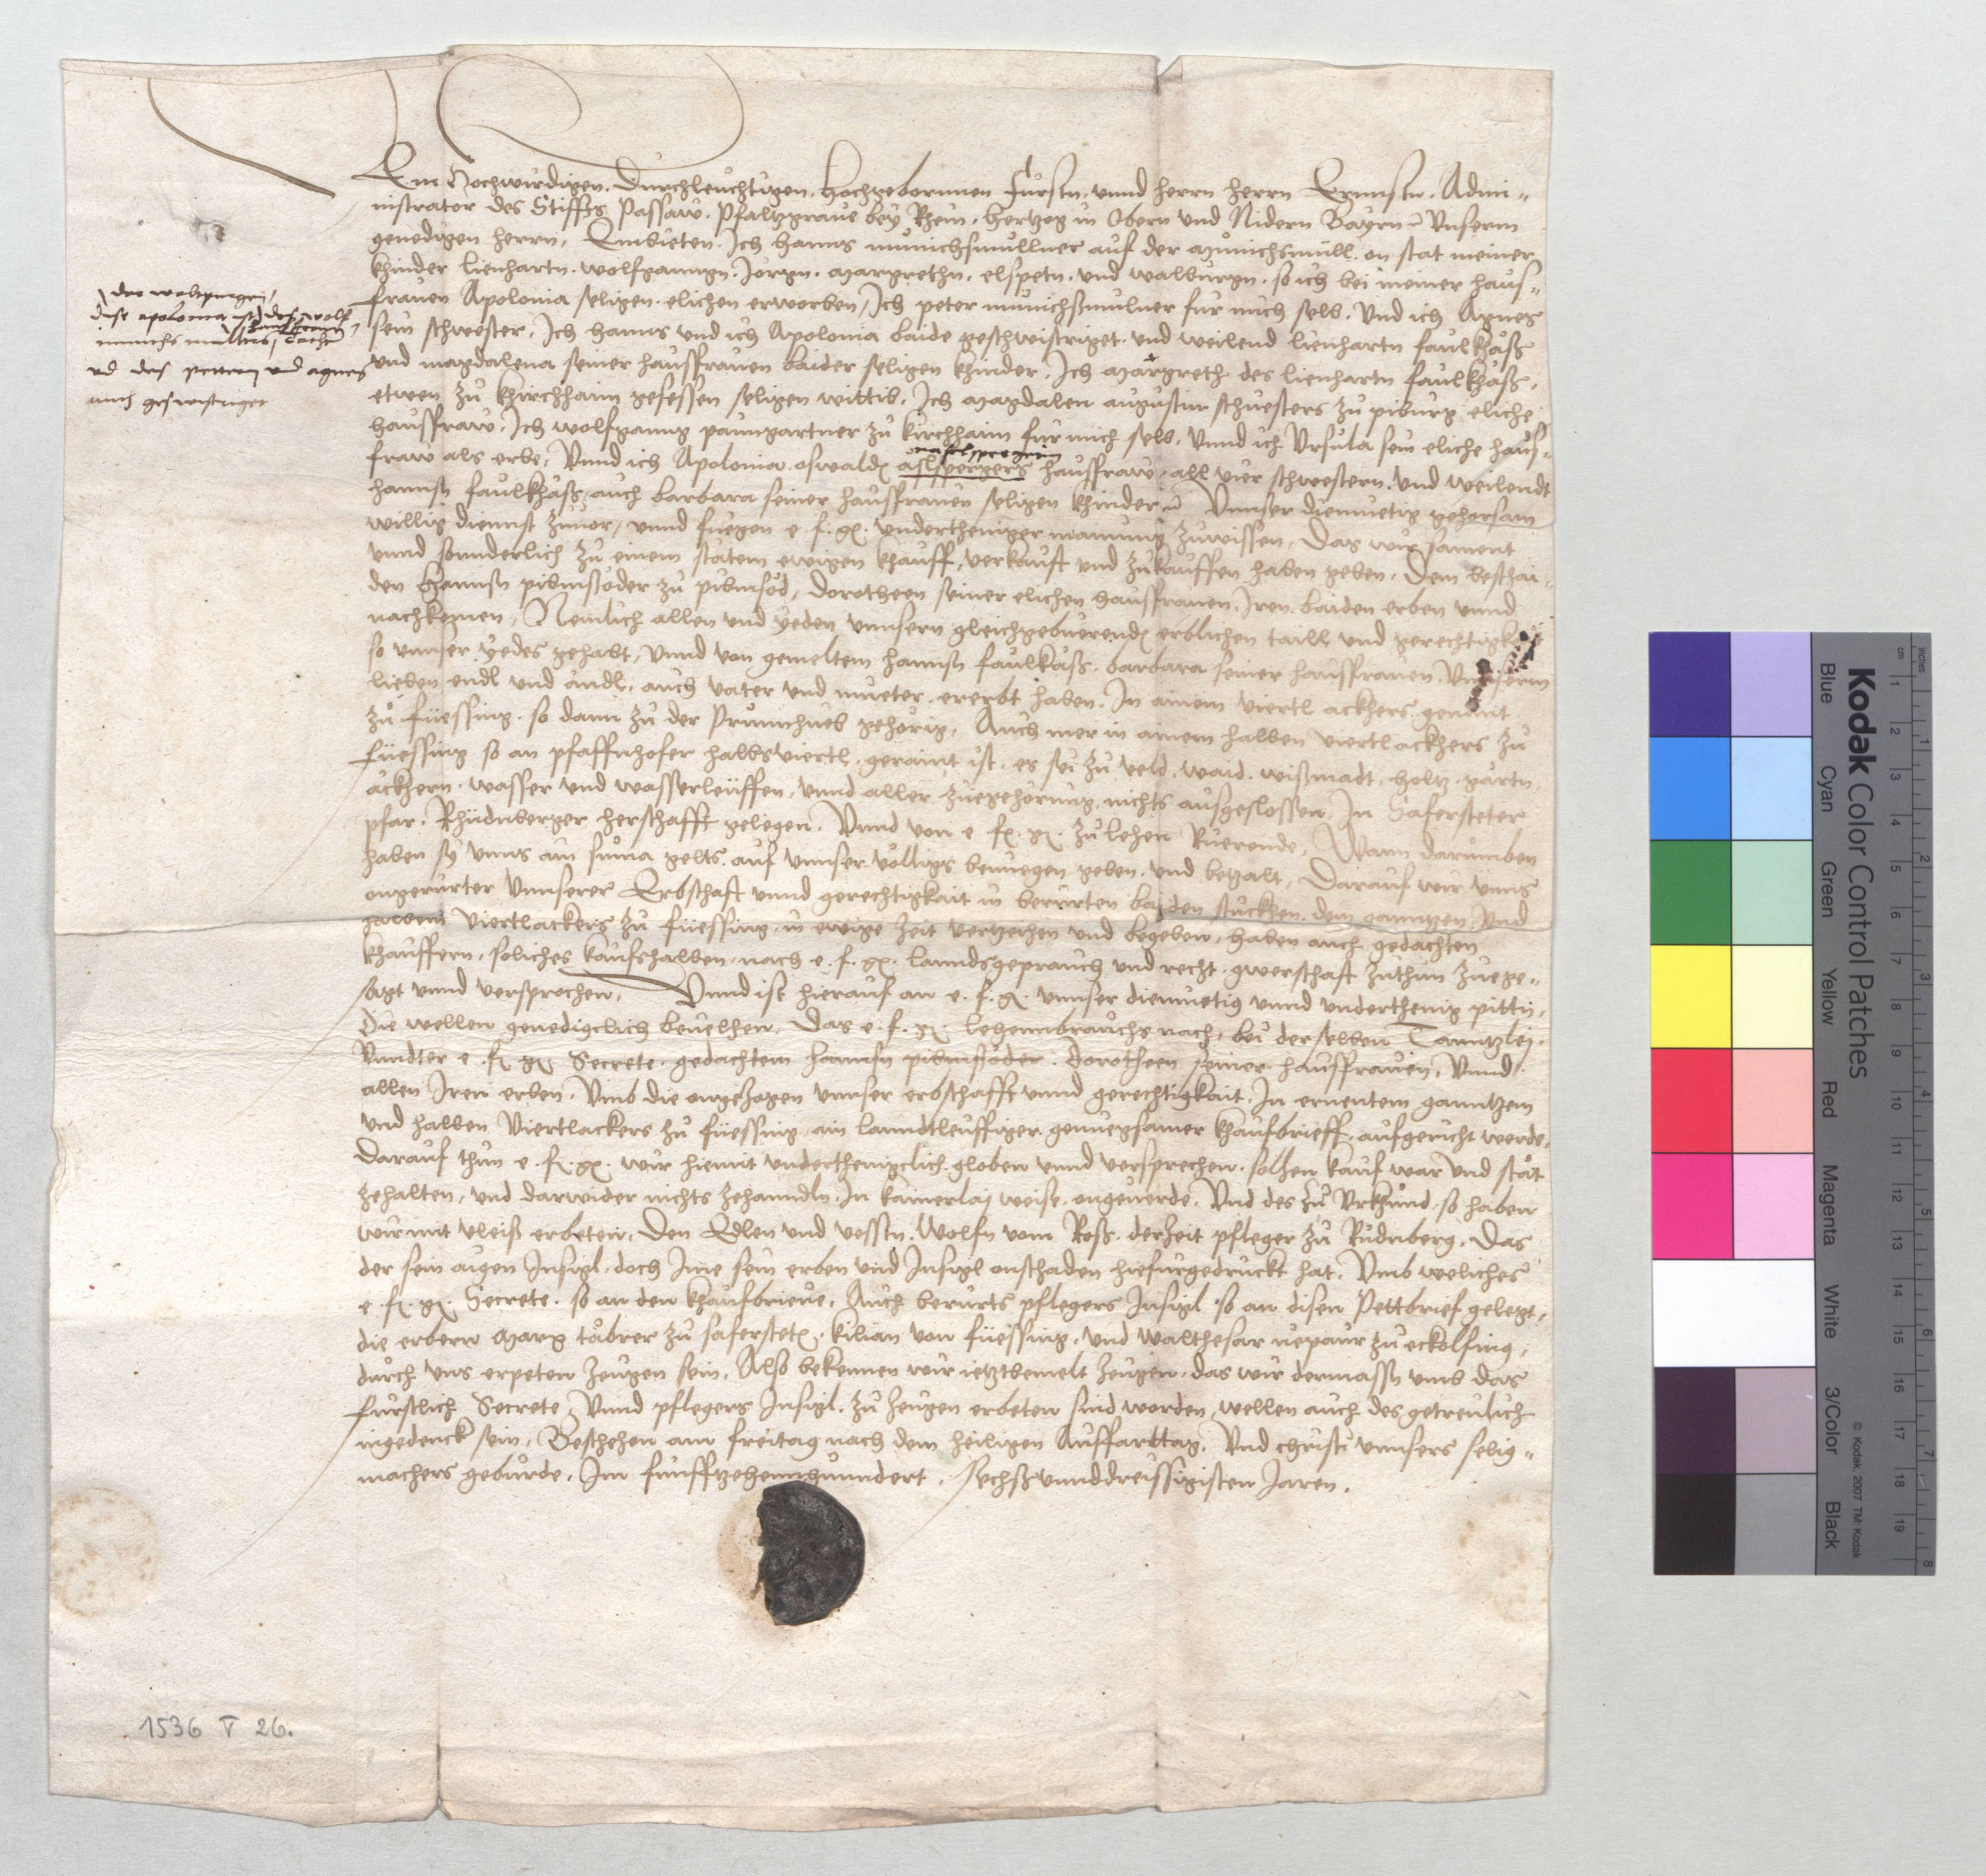 Dem Hochwirdigen. Durchleuchtigen. Hochgebornnen Fursten. vnnd herrn herrn Ernnsten. Admi-
nistrator des Stiffts Passaw. Pfaltzgraue bey Rhein. Hertzog in Obern vnd Nidern Bayrn Vnserm
genedigen herrn, Embieten. Ich Hanns munichsmullner auf der Munichsmull. an stat meiner
khinder lienhartn. wolfganngn. Jorgn. Margrethn. elspetn. vnd walburgn. so ich bei meiner haus-
frauen Apolonia seligen. elichen erworben, Ich peter munichsmulner fur mich selb. Vnd ich Agnes
sein schwester, Ich Hanns vnd ich Apolonia baide geschwistriget. vnd weilend lienhartn faulkhäß
vnd magdalena seiner hausfrauen baider seligen khinder, Ich Margreth des lienhartn faulkhäß,
etwen zu khirchhaim gesessen seligen wittib, Ich Magdalen augustin schuesters zu piburg eliche
hausfraw, Ich wolfganng paumgartner zu kirchhaim fur mich selb, Vnnd ich Vrsula sein eliche haus-
fraw als erbe, Vnnd ich Apolonia oswaldn aslspergers hausfraw. all vier schwestern. vnd weilendt
hannsn faulkhäß, auch barbara seiner hausfrauen seligen khinder Vnnser diemuetig gehorsam
willig diennst zuuor, vnnd fuegen e. f. g. vnderthenniger mainung zuwissen, Das wir sament
vnnd sonnderlich zu einem statem ewigen khauff, verkauft vnd zukauffen haben geben. Dem beschai-
den Hannsn pibmsöder zu pibmsöd, dorotheen seiner elichen hausfrauen, Iren baiden erben vnnd
nachkomen, Nemlich allen vnd yeden vnnsern gleichgebuerendn erblichen taill vnd gerechtigkait
so vnnser yedes gehabt, Vnnd von gemeltem hannsn faulkäß. barbara seiner hausfrauen, Vnnserm
lieben endl vnd ändl, auch vater vnd mueter. ererbt haben, In ainem viertl ackhers genant
zu füessing. so dann zu der Prunnhueb gehörig, Auch mer in ainem halben viertl ackhers zu
füessing so an pfaffnhofer halbsviertl. geraint ist, es sei zu veld. waid. wißmadt. holtz. gärtn
ackhern. wasser vnd wasserleuffen. vnnd aller zuegehorung. nichts ausgeslossen, In Safersteter
pfar. Rhüdnberger herschafft gelegen. Vnnd von e. f. g. zu lehen Ruerende, Wann darumben
haben sy vnns ain suma gelts. auf vnnser völligs benuegen geben. vnd betzalt, Darauf wir vnns
angerurter Vnnserer Erbschaft vnnd gerechtigkait in berürten baiden stuckhen. dem ganntzen vnd
halbem viertlackers zu füessing, in ewige zeit vertzeihen vnd begeben, haben auch gedachten
khauffern. soliches kaufshalben. nach e. f. g. lanndsgeprauch vnd recht. gwerschaft zuthun zuege-
sagt vnnd versprochen, Vnnd ist hierauf an e. f. g. vnnser diemuetig vnnd vnderthenig pittn,
die wellen genedigclich beuelhen, Das e. f. g. lehennbrauchs nach, bei derselben Canntzley.
Vnndter e. f. g. Secrete. gedachtem hannsn pibmsöder. dorotheen seiner hausfrauen, Vnnd
allen Iren erben, Vmb die angezogen vnnser erbschafft vnnd gerechtigkait, In ernentem ganntzem
vnd halben viertlackers zu füessing ain lanndtleuffiger genuegsamer khaufbrieff. aufgericht werde,
Darauf thun e. f. g. wir hiemit vnderthenigclich globen vnnd versprechen. solhen kauf war vnd stät
zehalten, vnd darwider nichts zehanndln, In kainerlaj weise. ongeuerde. Vnd des zu Vrkhund so haben
wir mit vleiß erbeten, Den Edlen vnd vessten. Wolfn vom Roß. derzeit pfleger zu Rudnberg. Das
der sein aigen Insigl. doch Ime sein erben vnd Insigl onschaden hiefurgedruckt hat, Vmb weliches
e. f. g. Secrete. so an den khaufbrieue, Auch berurts pflegers Insigl so an disen Pettbrief gelegt,
die erbern Marx täbrer zu safersteten, kilian von füessing, vnd walthesar nepaur zu eckolfing,
durch vns erpeten zeugen sein, Also bekennen wir ietztbemelt zeugen, das wir dermassn vmb das
fürstlich Secrete Vnnd pflegers Insigl. zu zeugen erbeten sind worden, wellen auch des getreulich
ingedenck sein, Beschehen am freitag nach dem heiligen Auffarttag, Vnd christi vnnsers selig-
machers geburde, Im funffzehennhunndert, sechßvnnddreissigisten Jaren.
dise apolonia ist des wolf
munchs mullers, tocher
vnd des pettern vnd agnes
auch geswistriget
1536 V 26.
Kodak Color Control Patches
Blue Cyan Green Yellow Red Magenta White 3/Color Black
© Kodak, 2007 TM: Kodak
cm 1 2 3 4 5 6 7 8 9 10 11 12 13 14 15 16 17 18 19
inches 1 2 3 4 5 6 7 8